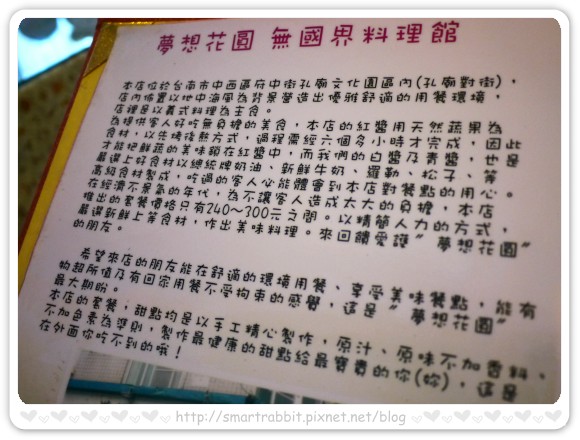 夢想花園 無國界料理館
本店位於台南市中西區府中街孔廟文化園區內(孔廟對街)，
店內佈置以地中海風為背景營造出優雅舒適的用餐環境，
店裡是以義式料理為主食。
為提供客人好吃無負擔的美食，本店的紅醬用天然蔬果為
食材，以先烤後熬方式，過程需經六個多小時才完成，因此
才能把鮮蔬的美味鎖在紅醬中，而我們的白醬及青醬，也是
嚴選上好食材以總統牌奶油、新鮮牛奶、羅勒、松子、等
高級食材製成，吃過的客人心能體會到本店對餐點的用心。
在經濟不景氣的年代，為不讓客人造成太大的負擔，本店
推出的套餐價格只有240~300元之間。以精簡人力的方式，
嚴選新鮮上等食材，作出美味料理。來回饋愛護"夢想花園"
的朋友。
希望來店的朋友能在舒適的環境用餐、享受美味餐點，能有
物超所值及有回家用餐不受拘束的感覺，這是"夢想花園"
最大期盼。
本店的套餐，甜點均是以手工精心製作，原汁、原味不加香料、
不加色素為準則，製作最健康的甜點給最寶貴的你(妳)，這是
在外面你吃不到的哦！
http://smartrabbit.pixnet.net/blog